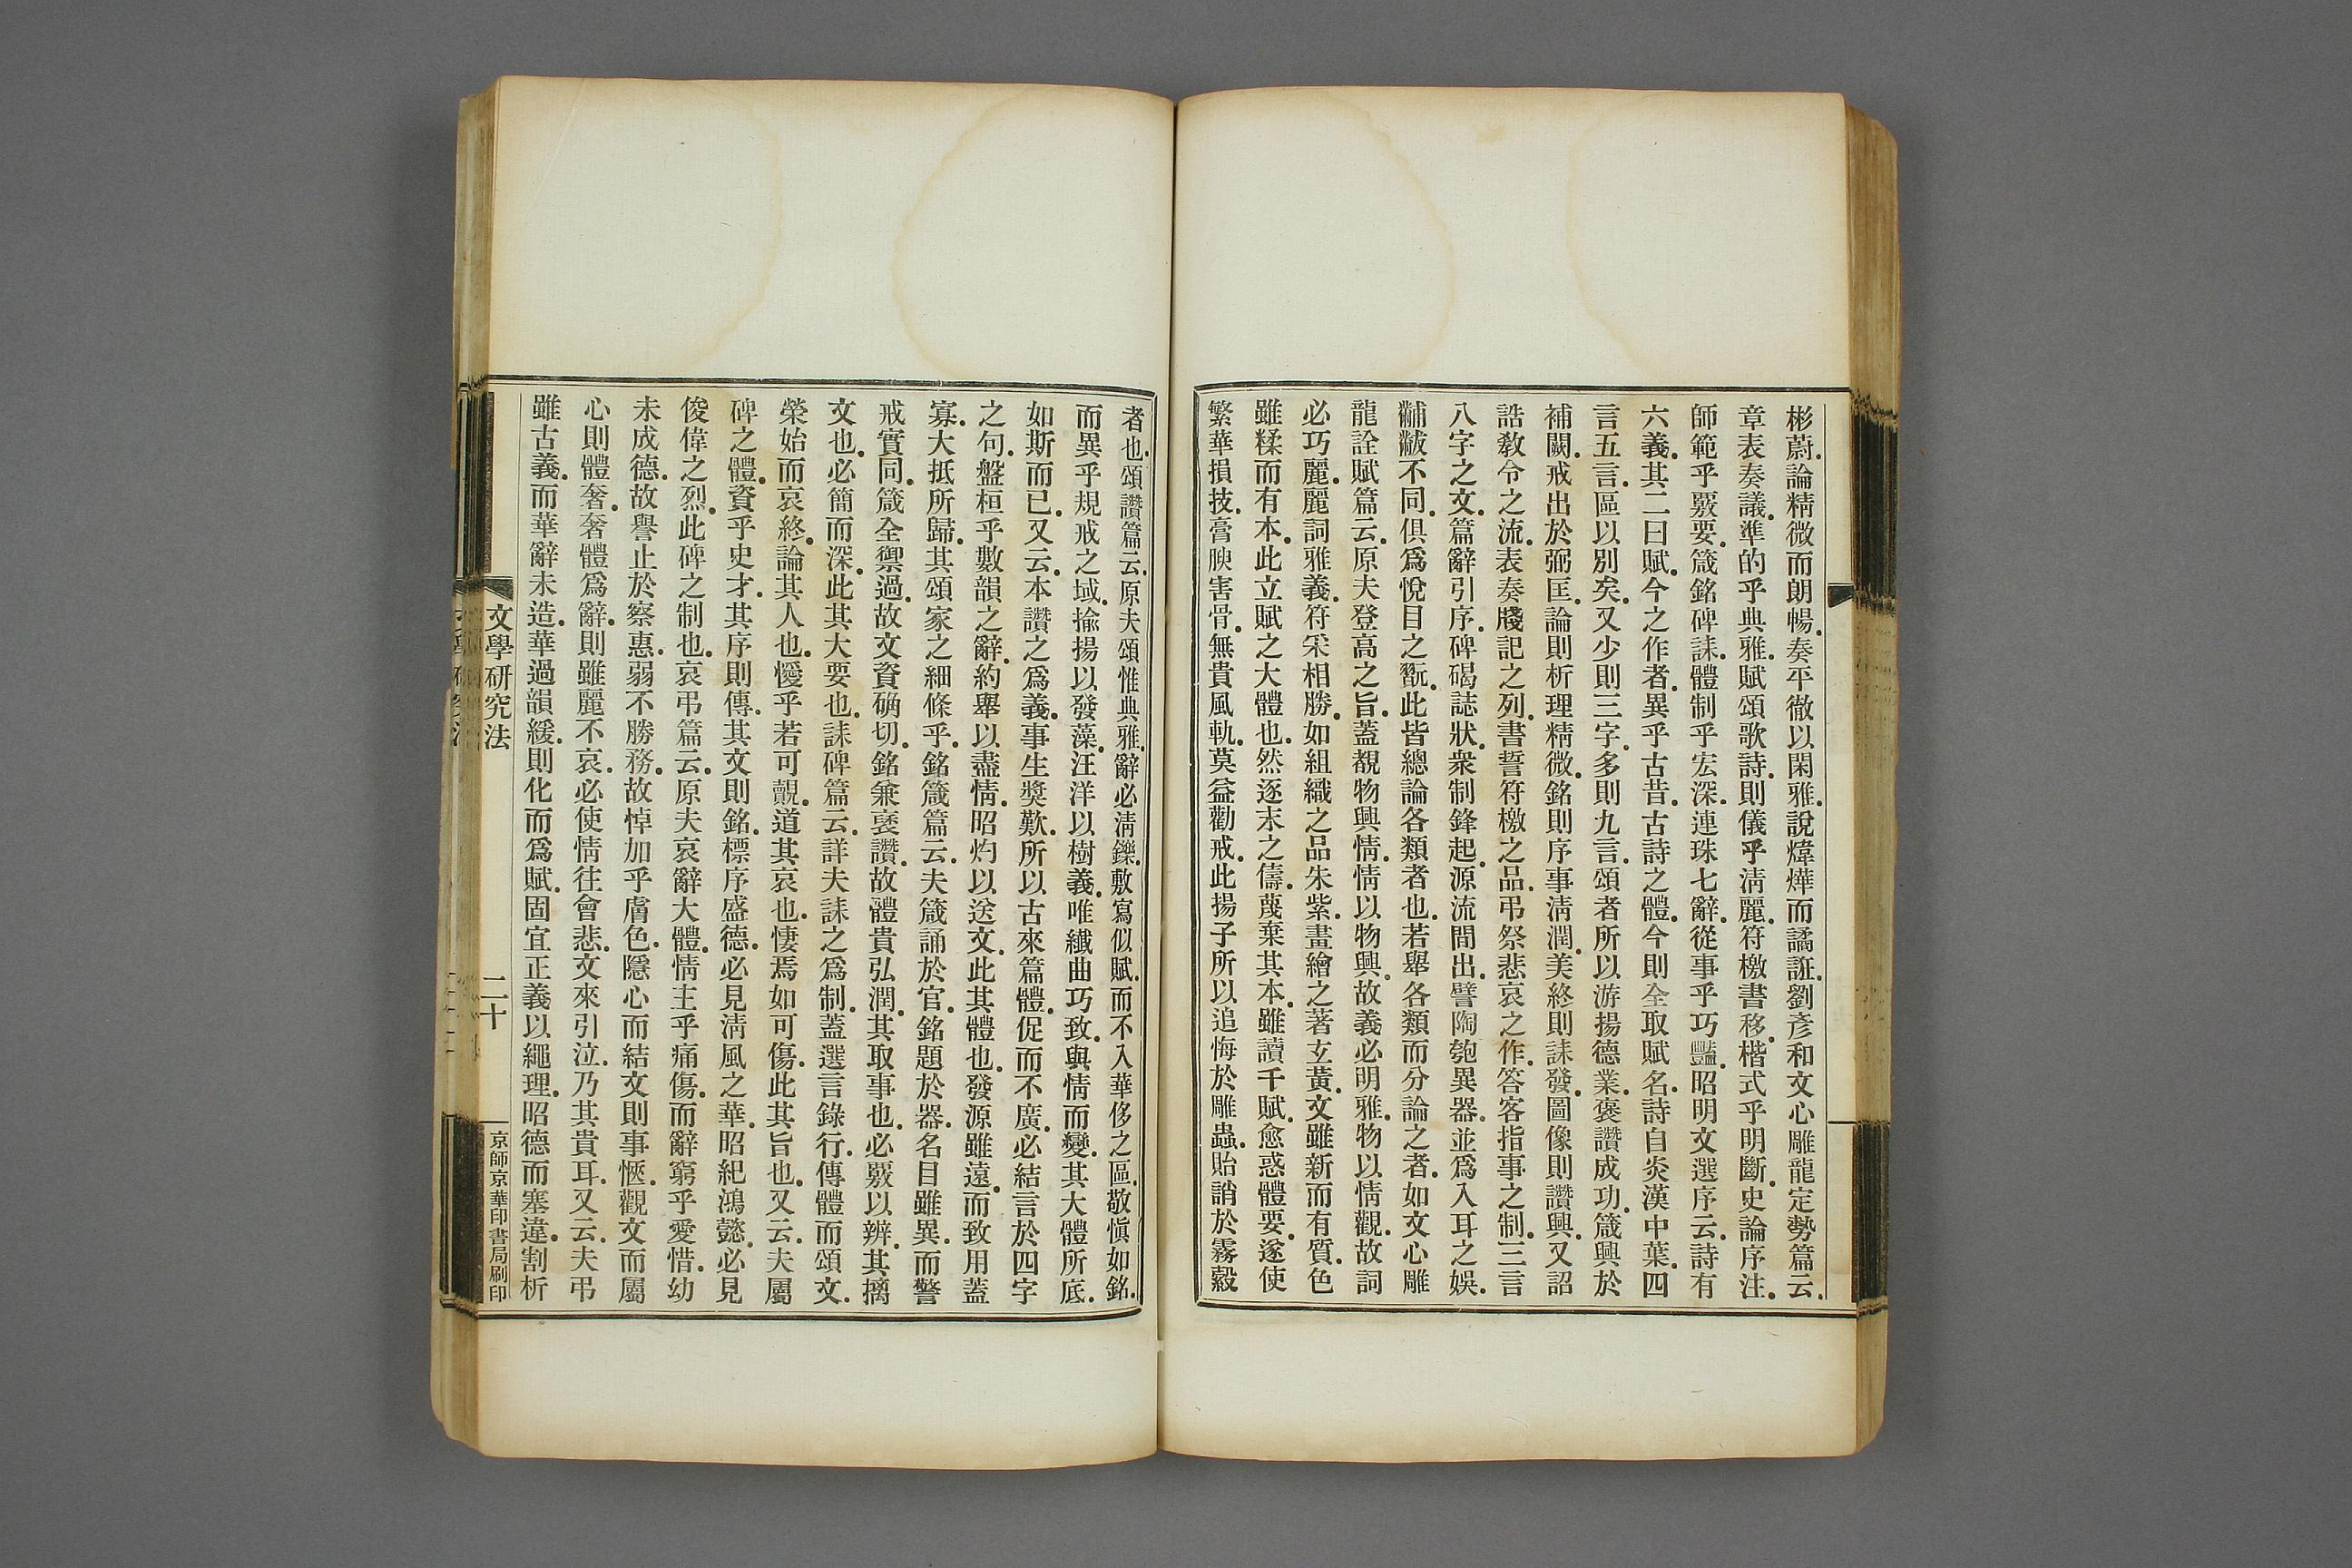 彬蔚.論精微而朗暢.奏平徹以閑雅.說煒燁而譎誑.劉彥和文心雕龍定勢篇云.
章表奏議.準的乎典雅.賦頌歌詩.則儀乎淸麗.符檄書移.楷式乎明斷.史論序注.
師範乎覈要.箴銘碑誄.體制乎宏深.連珠七辭.從事乎巧豔.昭明文選序云.詩有
六義.其二曰賦.今之作者.異乎古昔.古詩之體.今則全取賦名.詩自炎漢中葉.四
言五言.區以別矣.又少則三字.多則九言.頌者所以游揚德業.褒讚成功.箴興於
補闕.戒出於弼匡.論則析理精微.銘則序事淸潤.美終則誄發.圖像則讚興.又詔
誥敎令之流.表奏牋記之列.書誓符檄之品.弔祭悲哀之作.答客指事之制.三言
八字之文.篇辭引序.碑碣誌狀.衆制鋒起.源流間出.譬陶匏異器.並爲入耳之娛.
黼黻不同.俱爲悅目之翫.此皆總論各類者也.若舉各類而分論之者.如文心雕
龍詮賦篇云.原夫登高之旨.蓋覩物興情.情以物興.故義必明雅.物以情觀.故詞
必巧麗.麗詞雅義.符采相勝.如組織之品朱紫.畫繪之著玄黃.文雖新而有質.色
雖糅而有本.此立賦之大體也.然逐末之儔.蔑棄其本.雖讀千賦.愈惑體要.遂使
繁華損技.膏腴害骨.無貴風軌.莫益勸戒.此揚子所以追悔於雕蟲.貽誚於霧縠
者也.頌讚篇云.原夫頌惟典雅.辭必淸鑠.敷寫似賦.而不入華侈之區.敬愼如銘.
而異乎規戒之域.揄揚以發藻.汪洋以樹義.唯纖曲巧致.與情而變.其大體所底.
如斯而已.又云.本讚之爲義.事生獎歎.所以古來篇體.促而不廣.必結言於四字
之句.盤桓乎數韻之辭.約舉以盡情.昭灼以送文.此其體也.發源雖遠.而致用蓋
寡.大抵所歸.其頌家之細條乎.銘箴篇云.夫箴誦於官.銘題於器.名目雖異.而警
戒實同.箴全禦過.故文資确切.銘兼褒讚.故體貴弘潤.其取事也.必覈以辨.其摛
文也.必簡而深.此其大要也.誄碑篇云.詳夫誄之爲制.蓋選言錄行.傳體而頌文.
榮始而哀終.論其人也.曖乎若可覿.道其哀也.悽焉如可傷.此其旨也.又云.夫屬
碑之體.資乎史才.其序則傳.其文則銘.標序盛德.必見淸風之華.昭紀鴻懿.必見
俊偉之烈.此碑之制也.哀弔篇云.原夫哀辭大體.情主乎痛傷.而辭窮乎愛惜.幼
未成德.故譽止於察惠.弱不勝務.故悼加乎膚色.隱心而結文則事愜.觀文而屬
心則體奢.奢體爲辭.則雖麗不哀.必使情往會悲.文來引泣.乃其貴耳.又云.夫弔
雖古義.而華辭未造.華過韻緩.則化而爲賦.固宜正義以繩理.昭德而塞違.割析
文學硏究法
二十
京師京華印書局刷印